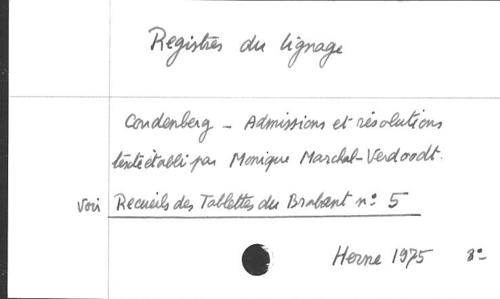 Registres du lignage
Coudenberg - Admissions et résolutions
texte établi par Monique Marchal-Verdoodt.
Voir Recueils des Tablettes du Brabant n° 5
Herne 1975 8°